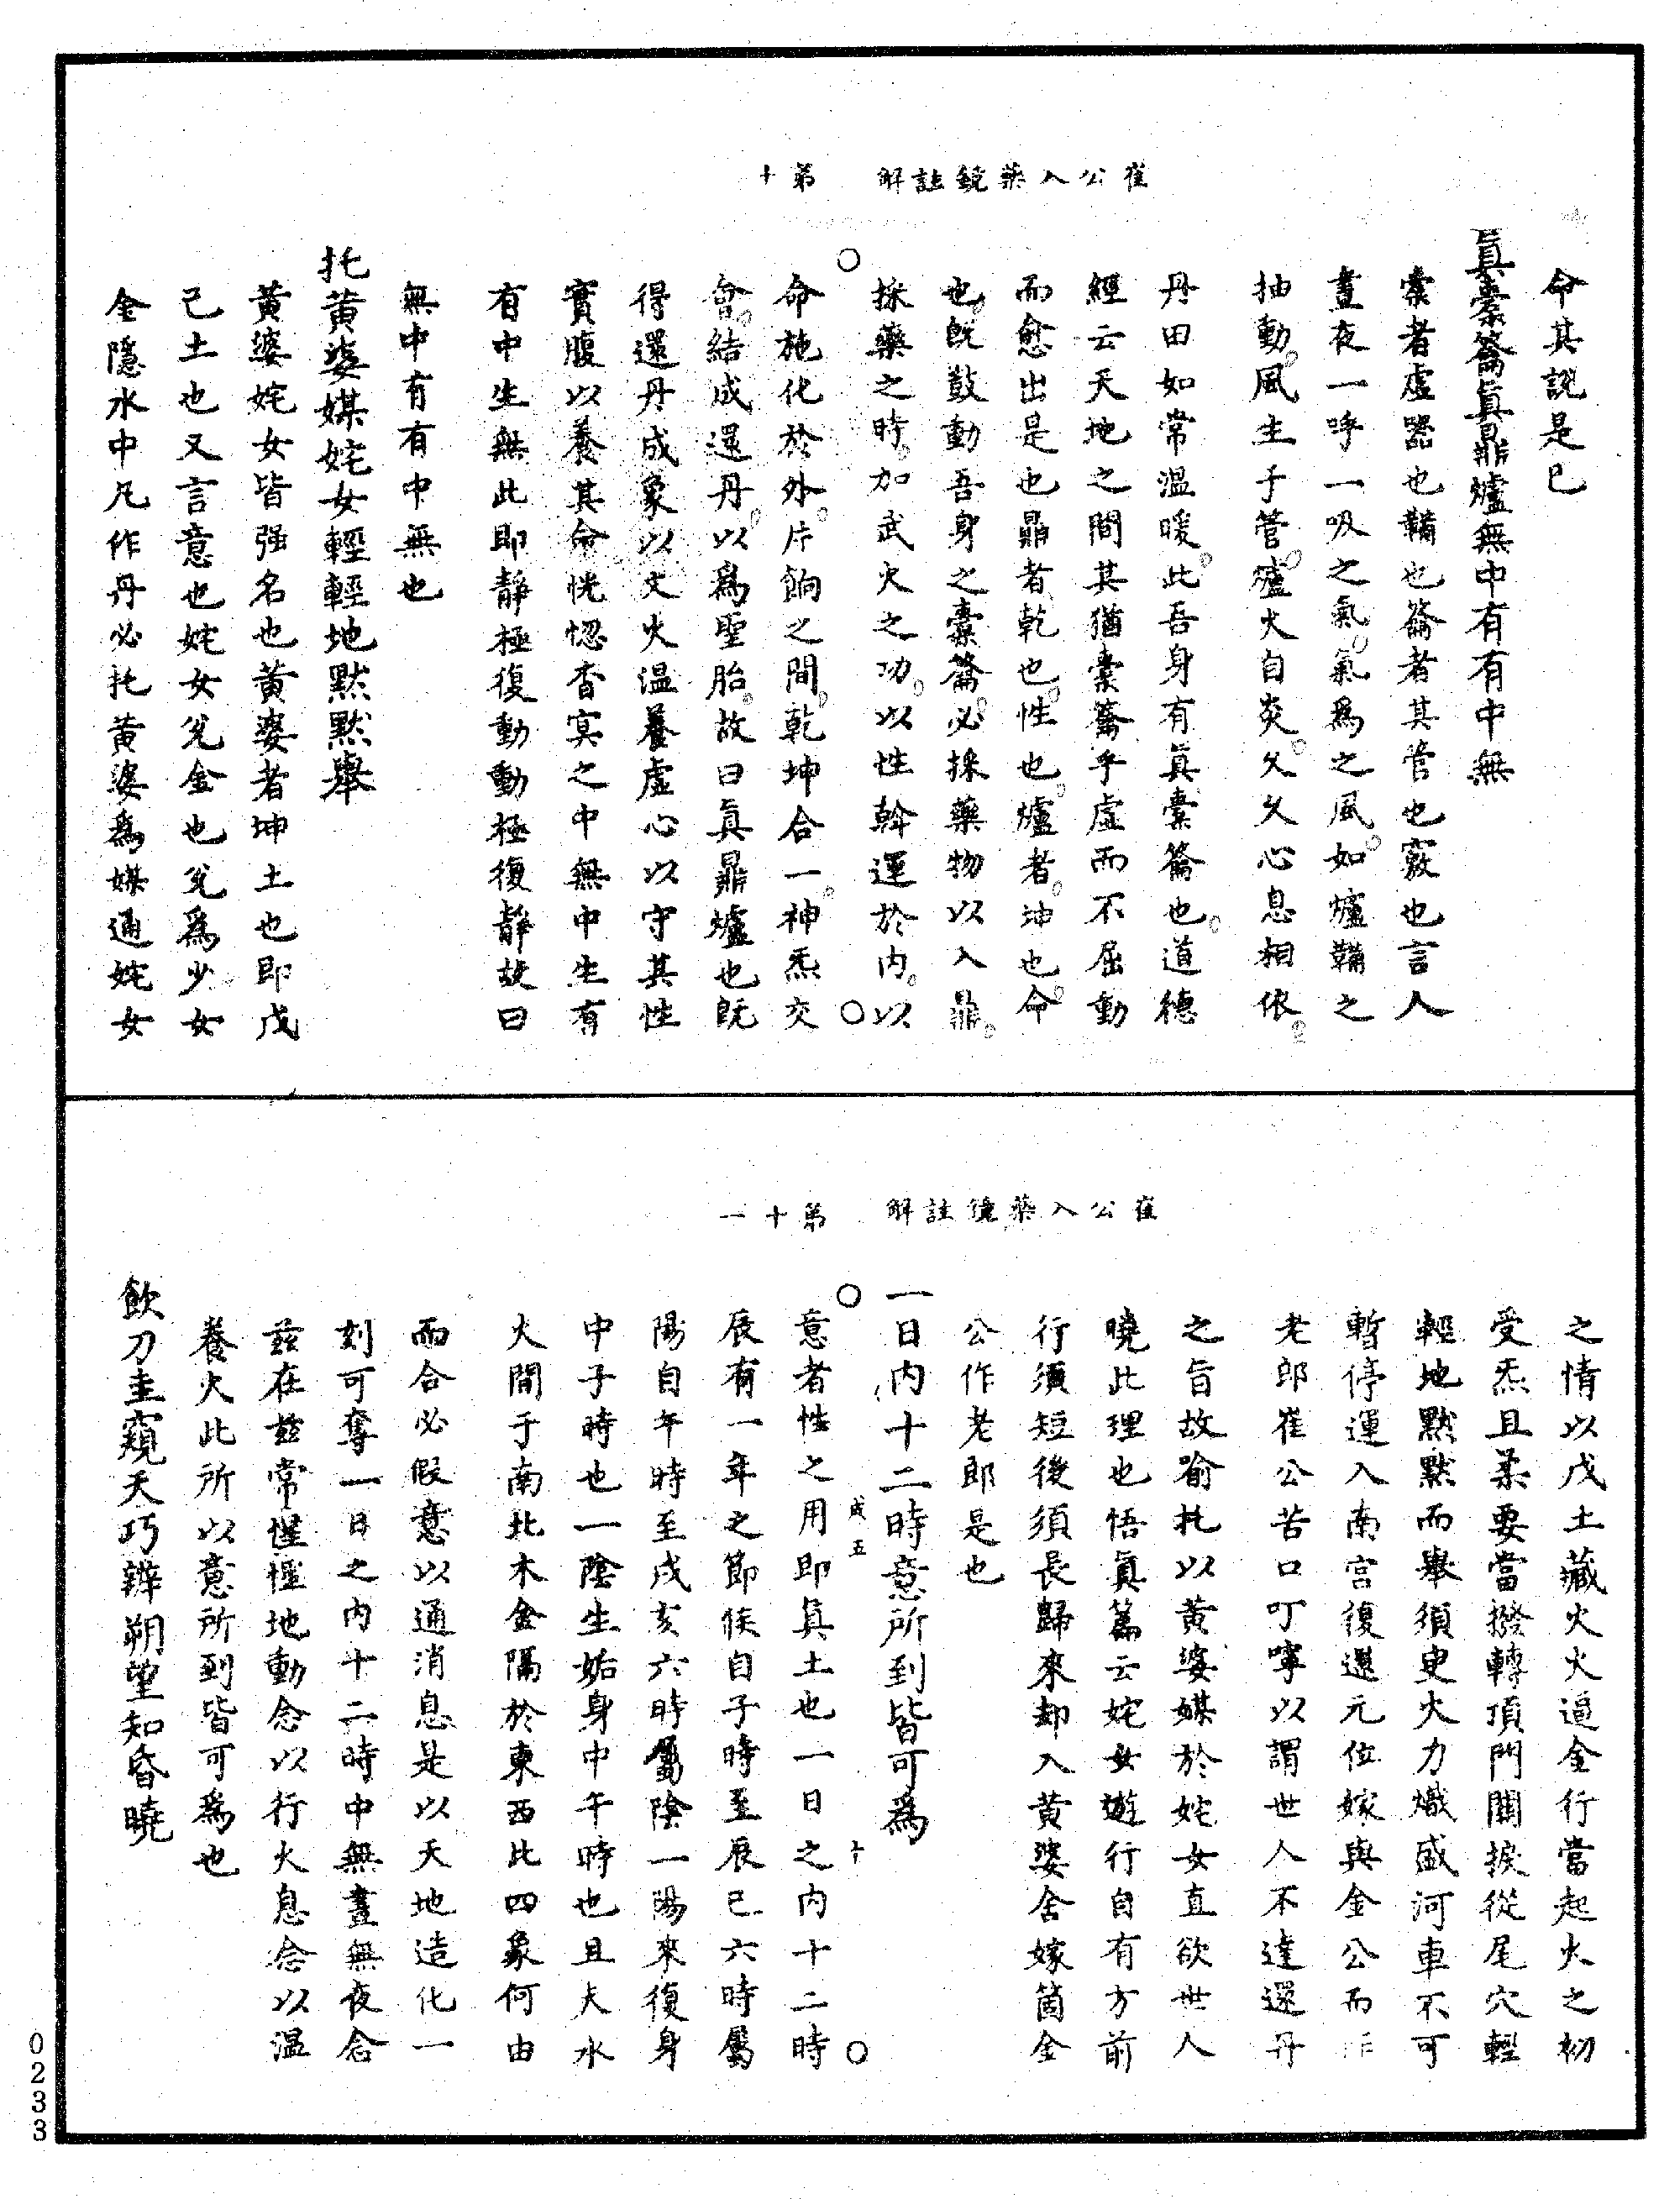 崔公入藥鏡註解　第十
命其說是已
真橐籥真鼎爐無中有有中無
橐者虛器也鞴也籥者其管也竅也言人
晝夜一呼一吸之氣氣為之風如爐鞴之
抽動風生于管爐火自炎久久心息相依
丹田如常溫暖此吾身有真橐籥也道德
經云天地之間其猶橐籥乎虛而不屈動
而愈出是也鼎者乾也性也爐者坤也命
也既鼓動吾身之橐籥必採藥物以入鼎
採藥之時加武火之功以性斡運於內以
命施化於外片餉之間乾坤合一神炁交
會結成還丹以為聖胎故曰真鼎爐也既
得還丹成象以文火溫養虛心以守其性
實腹以養其命恍惚杳冥之中無中生有
有中生無此即靜極復動動極復靜故曰
無中有有中無也
托黃婆媒姹女輕輕地默默舉
黃婆姹女皆强名也黃婆者坤土也即戊
己土也又言意也姹女兌金也兌為少女
金隱水中凡作丹必托黃婆為媒通姹女
崔公入藥鏡註解　第十一
之情以戊土藏火火逼金行當起火之初
受炁且柔要當撥轉頂門關捩從尾穴輕
輕地默默而舉須臾火力熾盛河車不可
暫停運入南宮復還元位嫁與金公而作
老郎崔公苦口叮嚀以謂世人不達還丹
之旨故喻托以黃婆媒於姹女直欲世人
曉此理也悟真篇云姹女遊行自有方前
行須短後須長歸來却入黃婆舍嫁箇金
公作老郎是也
一日內十二時意所到皆可為
成五　十
意者性之用即真土也一日之內十二時
辰有一年之節候自子時至辰巳六時屬
陽自午時至戌亥六時屬陰一陽來復身
中子時也一陰生姤身中午時也且夫水
火間于南北木金隔於東西此四象何由
而合必假意以通消息是以天地造化一
刻可奪一日之內十二時中無晝無夜念
茲在茲常惺惺地動念以行火息念以溫
養火此所以意所到皆可為也
飲刀圭窺天巧辨朔望知昏曉
0233